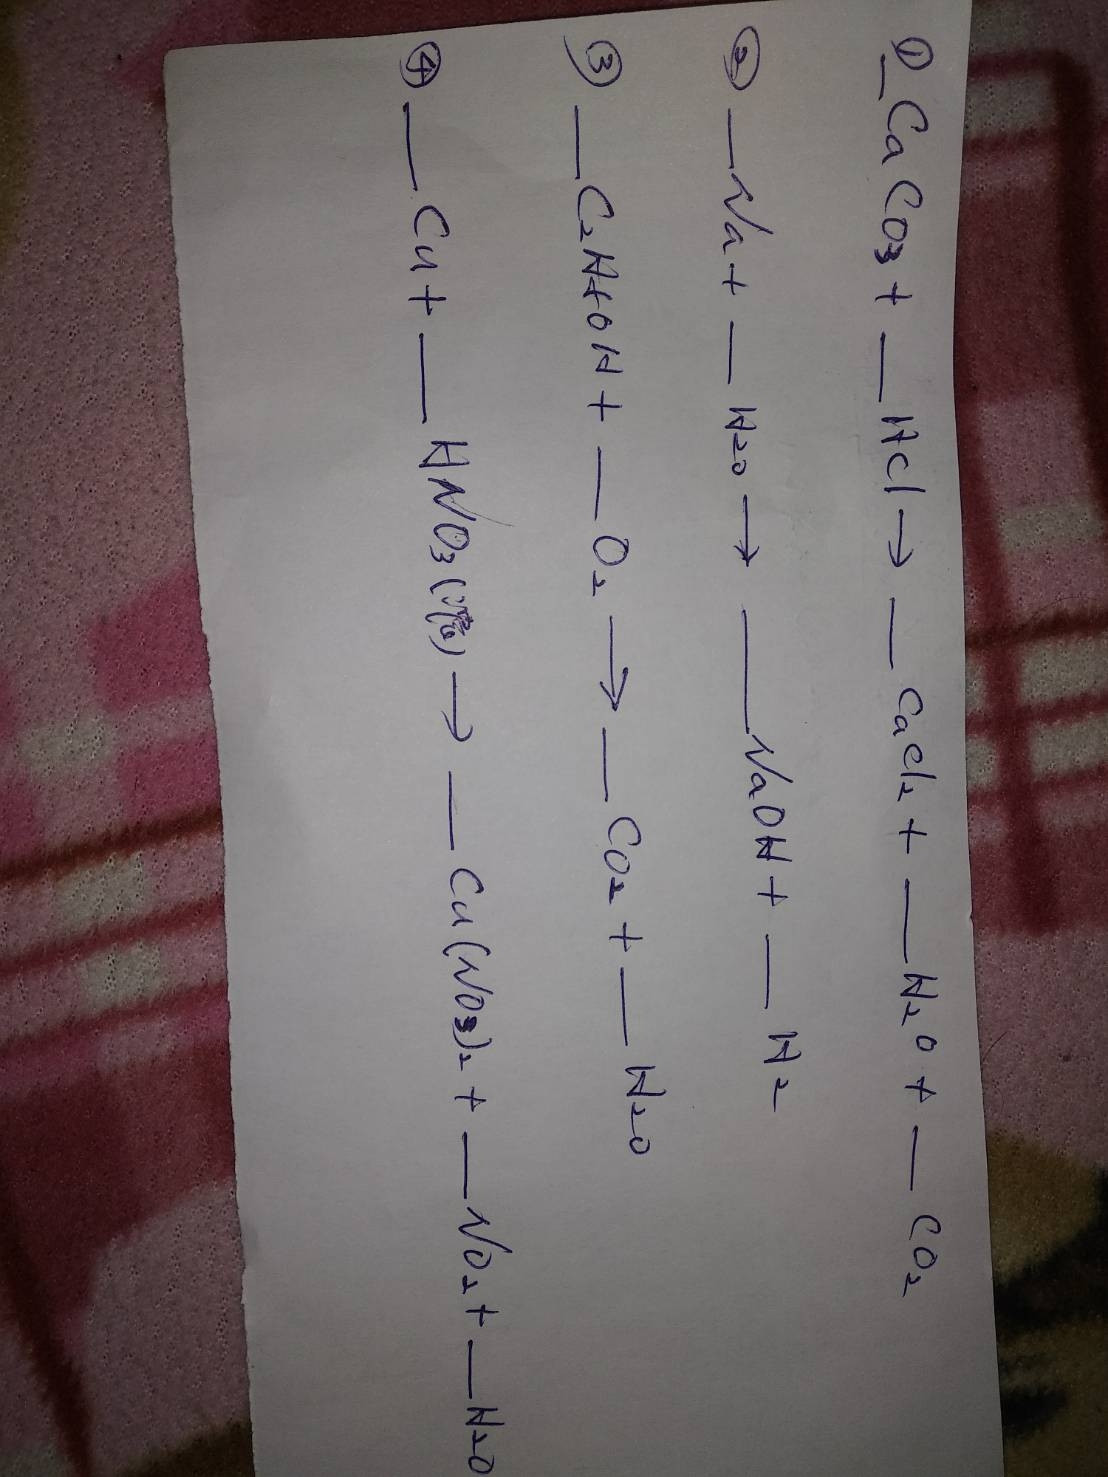 ① _ CaCO3 + _ HCl → _ CaCl2 + _ H2O + _ CO2
② _ Na + _ H2O → _ NaOH + _ H2
③ _ C2H5OH + _ O2 → _ CO2 + _ H2O
④ _ Cu + _ HNO3(浓) → _ Cu(NO3)2 + _ NO2 + _ H2O